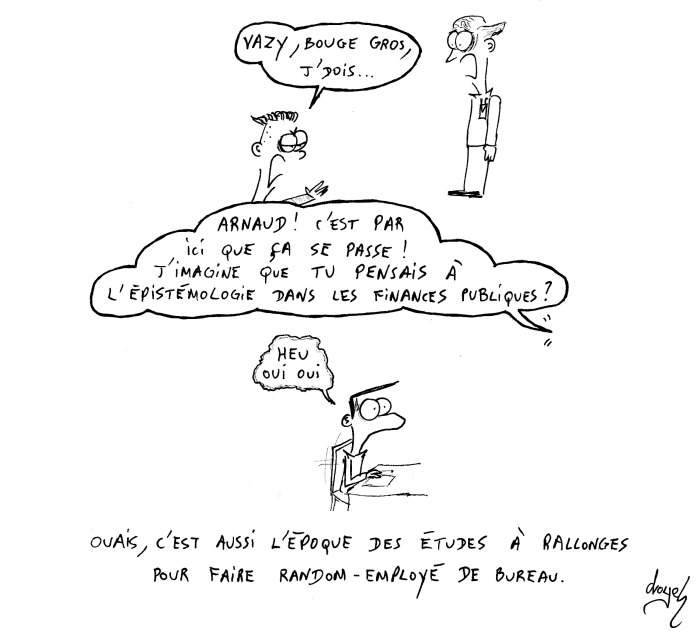 VAZY, BOUGE GROS,
J'DOIS...
ARNAUD! C'EST PAR
ICI QUE ÇA SE PASSE!
J'IMAGINE QUE TU PENSAIS À
L'ÉPISTÉMOLOGIE DANS LES FINANCES PUBLIQUES?
HEU
OUI OUI
OUAIS, C'EST AUSSI L'ÉPOQUE DES ÉTUDES À RALLONGES
POUR FAIRE RANDOM-EMPLOYÉ DE BUREAU.